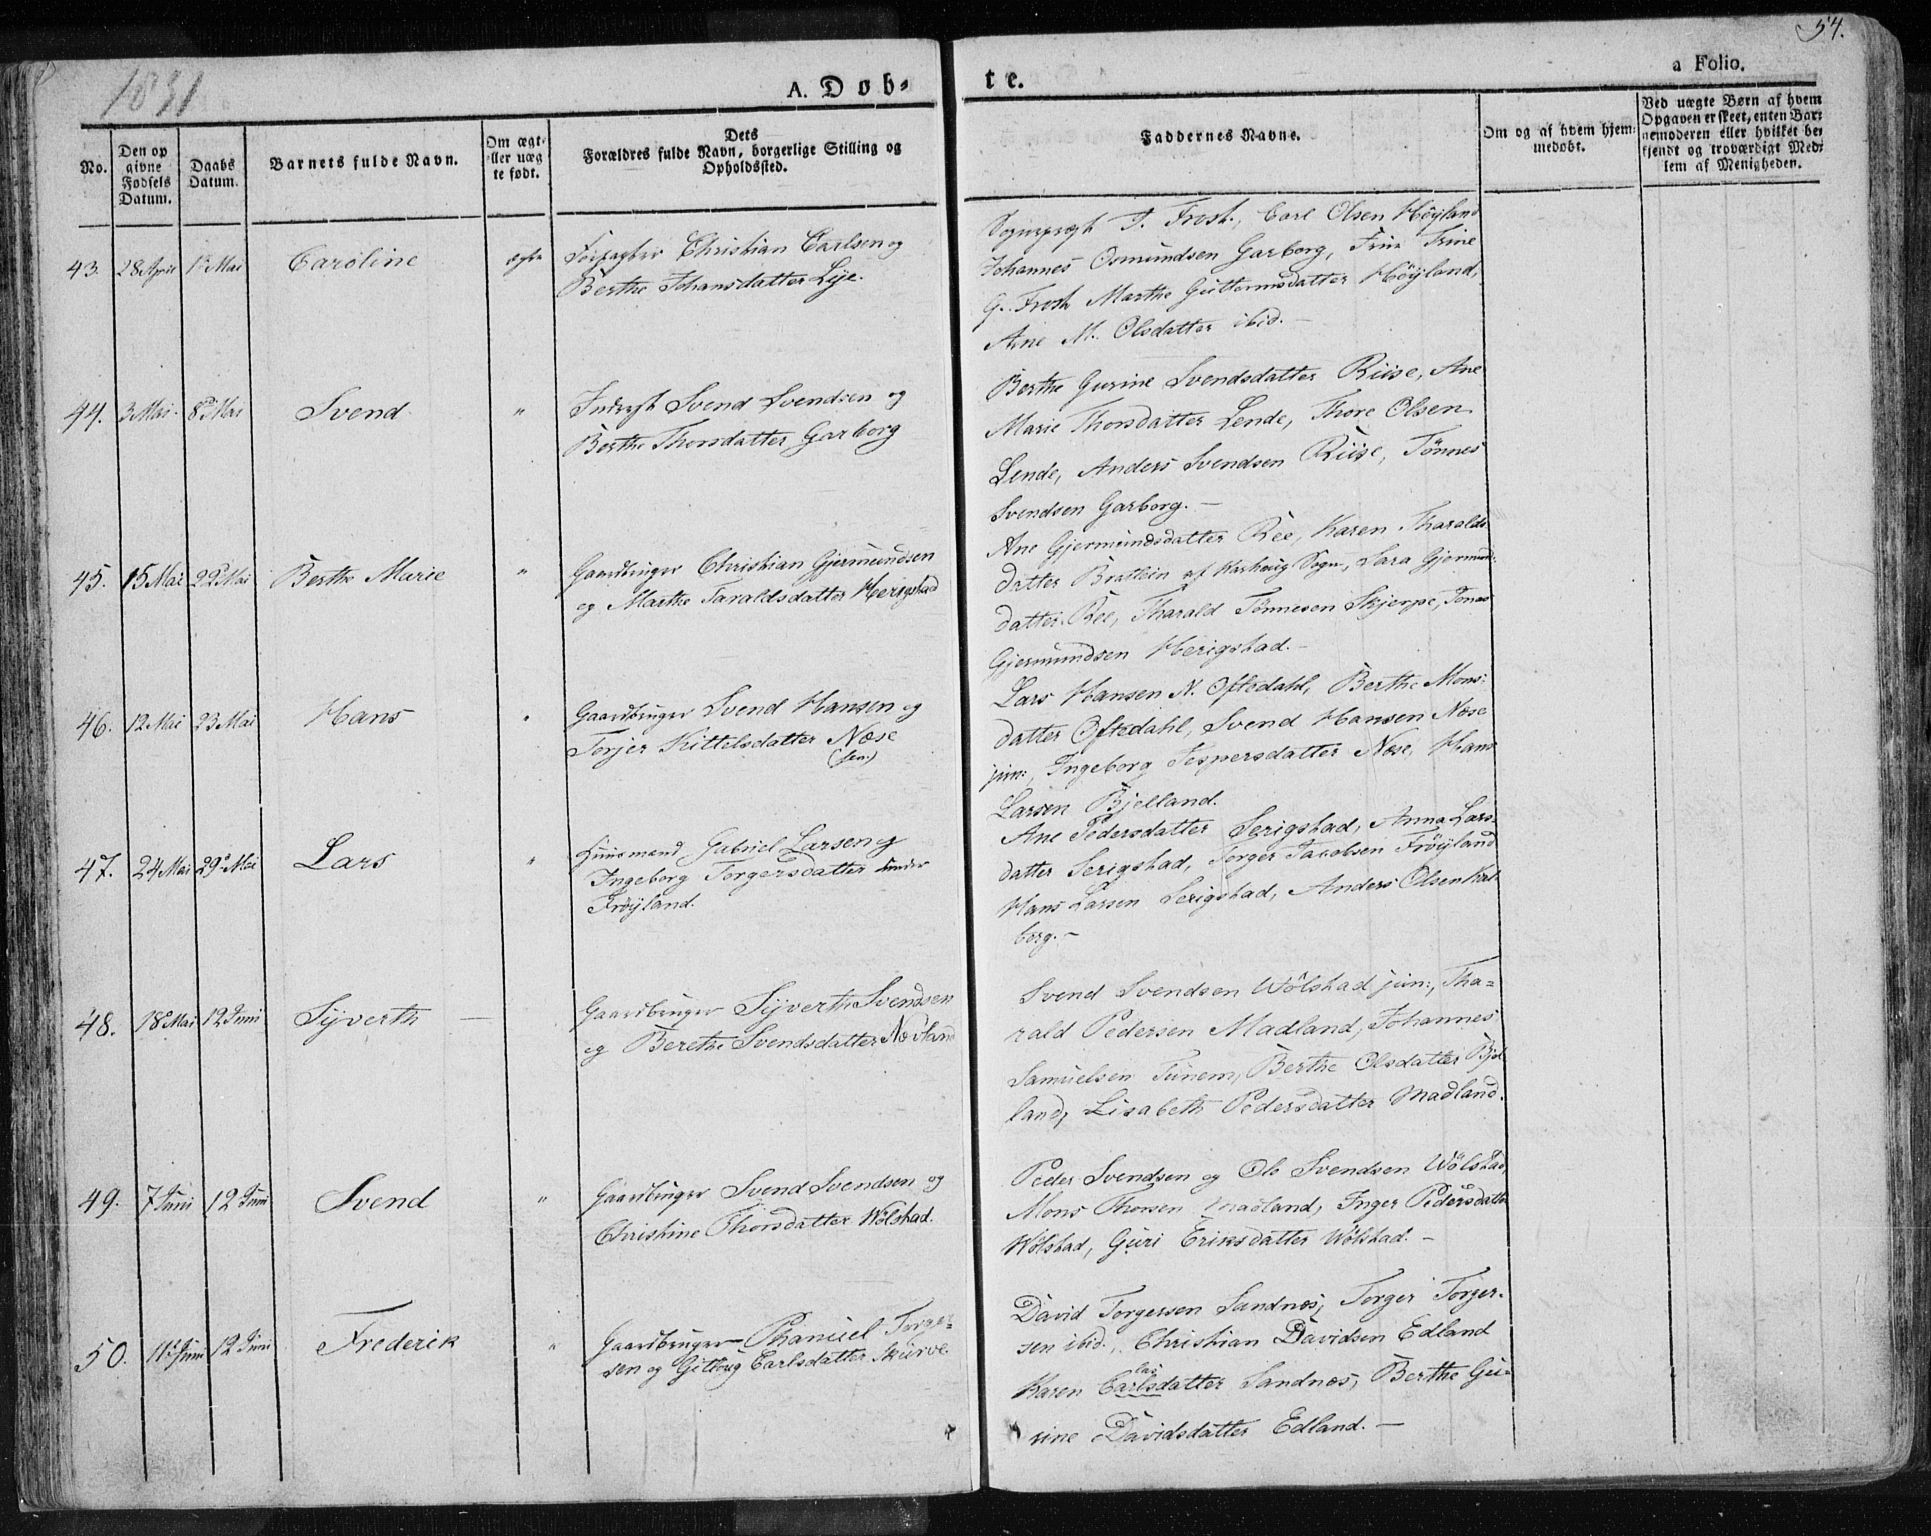 1831
A. Døb-
te.
54.
a Folio.
No.
Den op
givne
Fødsels
Datum.
Daabs
Datum.
Barnets fulde Navn.
Om ægt-
eller uæg
te født.
Dets
Forældres fulde Navn, borgerlige Stilling og
Opholdssted.
Faddernes Navne.
Om og af hvem hjem-
medøbt.
Ved uægte Børn af hvem
Opgaven er skeet, enten Bar-
nemoderen eller hvilket be-
kjendt og troværdigt Med-
lem af Menigheden.
43. 28 April 1 Mai Caroline ægte
Forpagter Christian Carlsen og
Berthe Johansdatter Lye.
Sogneprest P. Frost, Carl Olsen Höyland
Johannes Osmundsen Garborg, Frue Trine
G. Frost Marthe Guttormsdatter Höyland,
Ane M. Olsdatter ibid. -
44. 3 Mai. 8 Mai Svend "
Inderst Svend Svendsen og
Berthe Thorsdatter Garborg
Berthe Gurine Svendsdatter Riise, Ane
Marie Thorsdatter Lende, Thore Olsen
Lende, Anders Svendsen Riise, Tönnes
Svendsen Garborg. -
45. 15 Mai 22 Mai Berthe Marie "
Gaardbruger Christian Gjermundsen
og Marthe Taraldsdatter Herigstad
Ane Gjermundsdatter Ree, Karen Tharalds-
datter Brattein af Haehoug Sogn, Sara Gjermunds-
datter Ree, Tharald Tönnesen Skjerpe, Jonas
Gjermundsen Herigstad. -
46. 12 Mai 23 Mai Hans "
Gaardbruger Svend Hansen og
Torjer Kittelsdatter Nose
(sen:)
Lars Hansen N. Oftedahl, Berthe Mons:
datter Oftedahl, Svend Hansen Nose
jun:, Ingeborg Jespersdatter Nose, Hans
Larsen Bjelland.
47. 24 Mai 29 Mai Lars "
Huusmand Gabriel Larsen og
Ingeborg Torgersdatter under
Fröyland.
Ane Pedersdatter Serigstad, Anna Lars-
datter Serigstad, Torger Jacobsen Fröyland
Hans Larsen Serigstad, Anders Olsen Kal
berg. -
48. 18 Mai 12 Juni Syverth -
Gaardbruger Syverth Svendsen
og Berethe Svendsdatter Nevland
Svend Svendsen Wölstad jun:, Tha-
rald Pedersen Madland, Johannes
Samuelsen Tunem, Berthe Olsdatter Bjel
land, Lisabeth Pedersdatter Madland.
49. 7 Juni 12 Juni Svend "
Gaardbruger Svend Svendsen og
Christine Thorsdatter Wölstad.
Peder Svendsen og Ole Svendsen Wölstad,
Mons Thorsen Madland, Inger Pedersdatter
Wölstad, Guri Eriksdatter Wölstad. -
50. 11 Juni 12 Juni Frederik "
Gaardbruger Phanuel Torger-
sen og Gitlaug Carlsdatter Skurve.
David Torgersen Sandnæs, Torger Torger-
sen ibid., Christian Davidsen Edland
Karen Carlsdatter Sandnæs, Berthe Gu-
rine Davidsdatter Edland. -